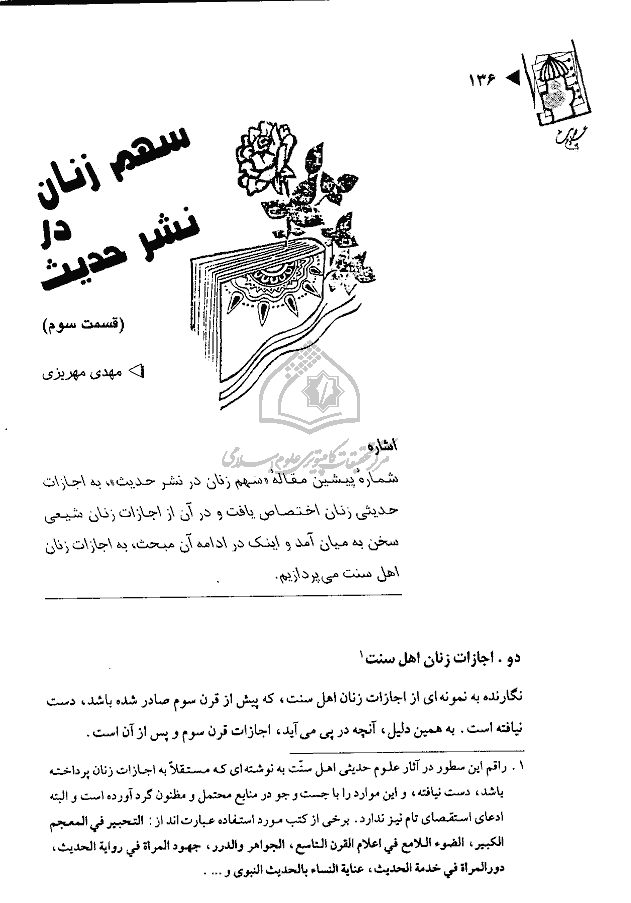 ۱۳۶
سهم زنان
در
نشر حدیث
(قسمت سوم)
مهدی مهریزی
مرکز تحقیقات کامپیوتری علوم اسلامی
اشاره
شمارهٔ پیشین مقالهٔ «سهم زنان در نشر حدیث»، به اجازات
حدیثی زنان اختصاص یافت و در آن از اجازات زنان شیعی
سخن به میان آمد و اینک در ادامه آن مبحث، به اجازات زنان
اهل سنت می‌پردازیم.
دو . اجازات زنان اهل سنت۱
نگارنده به نمونه ای از اجازات زنان اهل سنت، که پیش از قرن سوم صادر شده باشد، دست
نیافته است . به همین دلیل، آنچه در پی می‌آید، اجازات قرن سوم و پس از آن است .
۱ . راقم این سطور در آثار علوم حدیثی اهل سنّت به نوشته ای که مستقلاً به اجازات زنان پرداخته
باشد، دست نیافته، و این موارد را با جست و جو در منابع محتمل و مظنون گرد آورده است و البته
ادعای استقصای تام نیز ندارد. برخی از کتب مورد استفاده عبارت اند از : التحبیر في المعجم
الکبیر، الضوء اللامع في اعلام القرن التاسع، الجواهر والدرر، جهود المرأة في روایة الحدیث،
دورالمرأة في خدمة الحدیث، عنایة النساء بالحدیث النبوی و ... .